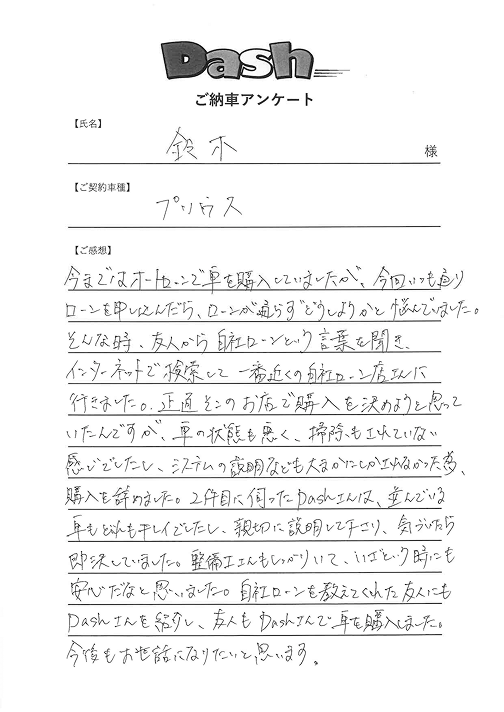 Dash
ご納車アンケート
【氏名】
鈴木
様
【ご契約車種】
プリウス
【ご感想】
今まではオートローンで車を購入していましたが、今回いつも通り
ローンを申し込んだら、ローンが通らずどうしようかと悩んでいました。
そんな時、友人から自社ローンという言葉を聞き、
インターネットで検索して一番近くの自社ローン店さんに
行きました。正直そこのお店で購入を決めようと思って
いたんですが、車の状態も悪く、掃除もされていない
感じでしたし、システムの説明なども大まかにしかされなかった為、
購入を辞めました。2件目に伺ったDashさんは、並んでいる
車もどれもキレイでしたし、親切に説明して下さり、気づいたら
即決していました。整備工さんもしっかりいて、いざという時にも
安心だなと思いました。自社ローンを教えてくれた友人にも
Dashさんを紹介し、友人もDashさんで車を購入しました。
今後もお世話になりたいと思います。